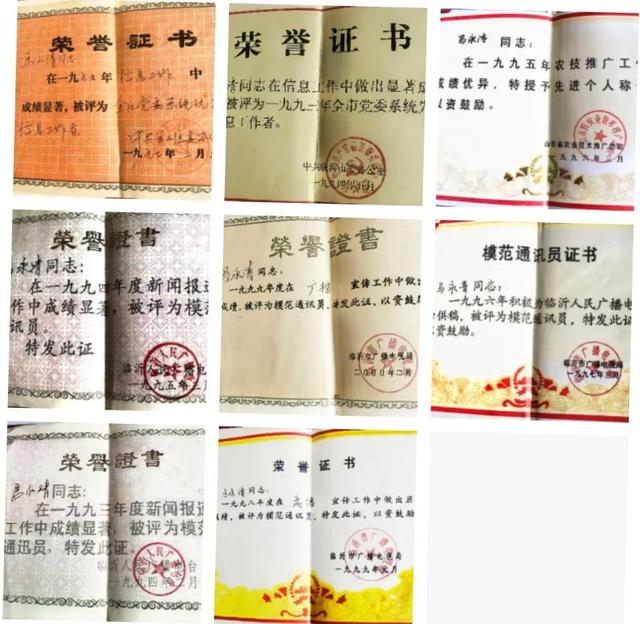 荣誉证书
马永清同志:
在一九
信息工作
中
成绩显著,被评为
信息工作者
荣誉证书
清同志在信息工作中做出显著成
被评为一九九三年全市党委系统
息工作者。
中共临沂
一九九四年
同志:
在一九九五年农技推广工
成绩优异,特授予先进个人称
以资鼓励。
山东省农业技术推广总站
一九九六年三月
荣譽證書
马永清同志:
在一九九四年度新闻报道
作中成绩显著,被评为模
讯员。
特发此证
临沂人民广播电
一九九五年三月
荣譽證書
马永清同志:
一九九九年度在广播宣传工作中做出
成绩,被评为模范通讯员,特发此证,以资鼓励
临沂市广播电视局
二〇〇〇年二月
模范通讯员证书
马永清同志:
一九九六年积极为临沂人民广播电
台供稿,被评为模范通讯员,特发此证
以资鼓励。
临沂市广播电视局
一九九七年三月
荣譽證書
马永清同志:
在一九九三年度新闻报道
工作中成绩显著,被评为模范
通讯员,特发此证。
临沂人民广播电台
一九九四年三月
荣誉证书
马永清同志:
一九九八年度在
宣传工作中做出显
成绩,被评为模范通讯员,特发此证,以资鼓励
临沂市广播电视局
一九九九年元月